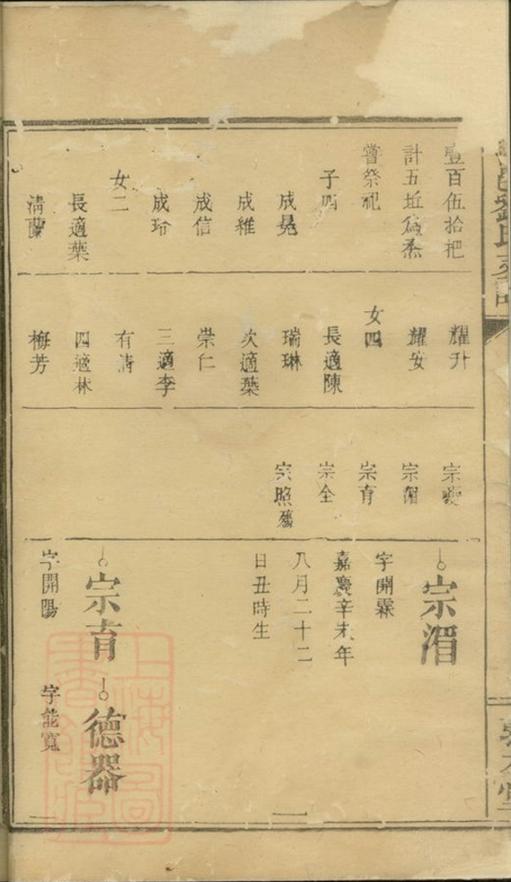 壹百伍拾把
計五坵爲烝
嘗祭祀
子四
成晃
成維
成信
成玲
女二
長適葉
清蘭
耀升
耀安
女四
長適陳
瑞琳
次適葉
崇仁
三適李
有清
四適林
梅芳
宗湄
宗育
宗全
宗照殤
宗湄
字開霖
嘉慶辛未年
八月二十二
日丑時生
宗育
字開陽
德器
字能寬